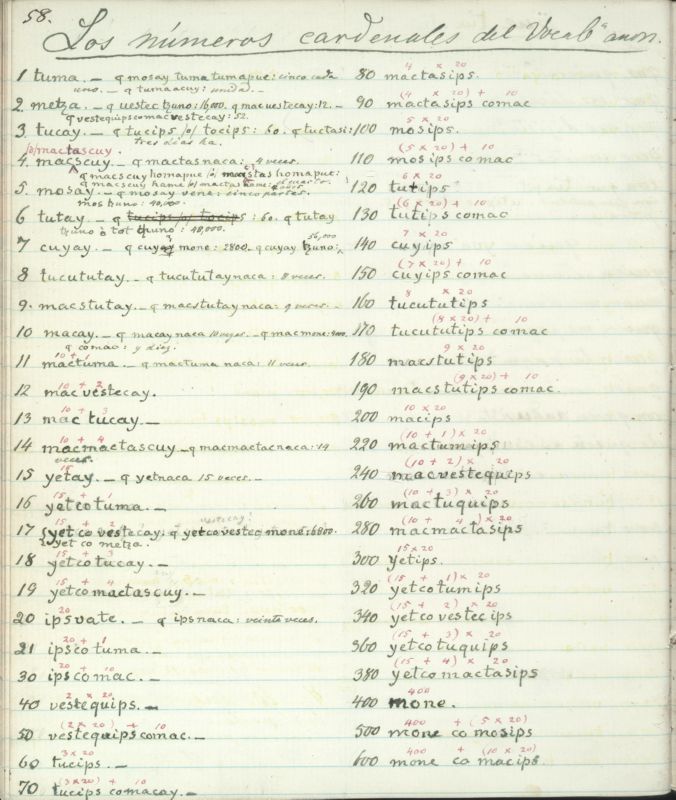 58.
Los números cardenales del Vocab.º anon.
1 tuma. — q mosay tuma tumapue: cinco cada
uno. — q tumaacuy: unidad. —
2. metza. — q vestec tzuno: 16,000. q macvestecay: 12. —
q vestequipscomacvestecay: 52.
3. tucay. — q tucips /o/ tocips: 60. q tuctasi:
tres dias ha.
/o/ mactascuy.
4. macscuy. — q mactasnaca: 4 veces.
q macscuy homapue /o mactas homapue:
q macscuy hame /o/ mactashame:
5. mosay. — q mosay vene: cinco partes.
mos tzuno: 40,000.
6 tutay. — q tucips /o/ tocips: 60. q tutay
tzuno o tot tzuno: 48,000.
7 cuyay. — q cuyay mone: 2800. q cuyay tzuno: 56,000
8 tucututay. — q tucututaynaca: 8 veces.
9. macstutay. — q macstutaynaca: 9 veces.
10 macay. — q macaynaca 10 veces. — q macmone: 4000.
q comac: y diez.
10 + 1
11 mactuma. — q mactuma naca: 11 veces.
10 + 2
12 macvestecay.
10 + 3
13 mac tucay. —
10 + 4
14 macmactascuy — q macmactacnaca: 14
veces.
15
15 yetay. — q yetnaca 15 veces. —
15 + 1
16 yetcotuma. —
15 + 2
17 yet co vestecay; q yetco vestec mone: 6800.
vestecay:
yet co metza.
15 + 3
18 yetcotucay. —
15 + 4
19 yetcomactascuy. —
20
20 ipsvate. — q ipsnaca: veinte veces.
20 + 1
21 ipscotuma. —
20 + 10
30 ipscomac. —
2 x 20
40 vestequips. —
(2 x 20) + 10
50 vestequipscomac. —
3 x 20
60 tucips. —
(3x20) + 10
70 tucips comacay. —
4 x 20
80 mactasips.
(4 x 20) + 10
90 mactasips comac
5 x 20
100 mosips.
(5 x 20) + 10
110 mosips comac
6 x 20
120 tutips
(6 x 20) + 10
130 tutips comac
7 x 20
140 cuyips
(7 x 20) + 10
150 cuyips comac
8 x 20
160 tucututips
(8 x 20) + 10
170 tucututips comac
9 x 20
180 macstutips
(9 x 20) + 10
190 macstutips comac.
10 x 20
200 macips
(10 + 1) x 20
220 mactumips
(10 + 2) x 20
240 macvestequips
(10 + 3) x 20
260 mactuquips
(10 + 4) x 20
280 macmactasips
15 x 20
300 yetips.
(15 + 1) x 20
320 yetcotumips
(15 + 2) x 20
340 yetco vestec ips
(15 + 3) x 20
360 yetcotuquips
(15 + 4) x 20
380 yetcomactasips
400
400 mone.
400 + (5 x 20)
500 mone co mosips
400 + (10 x 20)
600 mone co macips